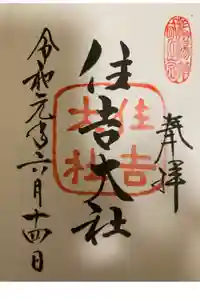 奉拝
住吉大社
住吉大社
令和元年六月十四日